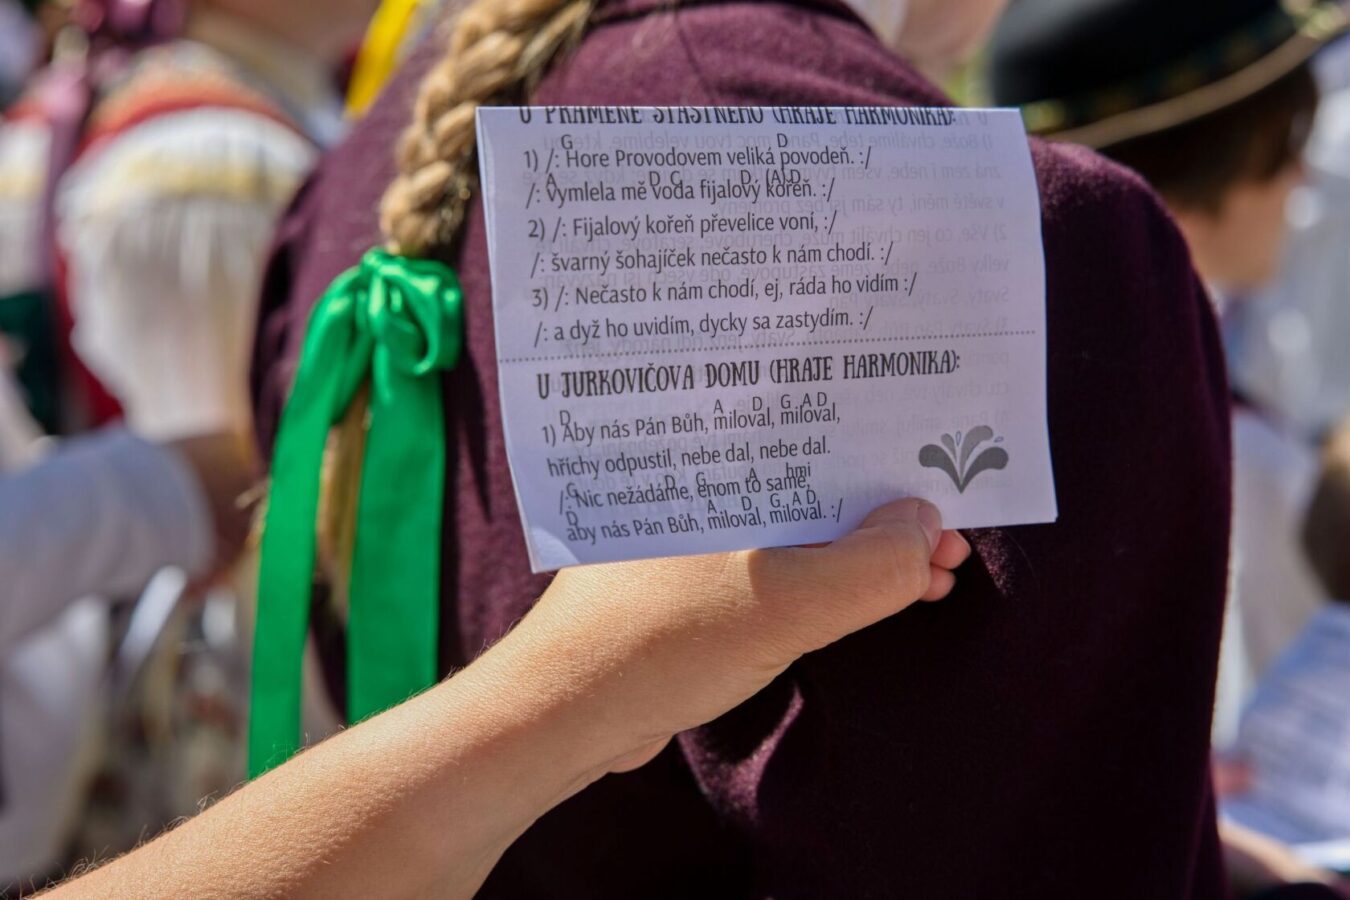 U PRAMENE ŠŤASTNÉHO (HRAJE HARMONIKA):
G D
1) /: Hore Provodovem veliká povodeň. :/
A D G D (A) D
/: Vymlela mě voda fijalový kořeň. :/
2) /: Fijalový kořeň převelice voní, :/
/: švarný šohajíček nečasto k nám chodí. :/
3) /: Nečasto k nám chodí, ej, ráda ho vidím :/
/: a dyž ho uvidím, dycky sa zastydím. :/
U JURKOVIČOVA DOMU (HRAJE HARMONIKA):
D A D G A D
1) Aby nás Pán Bůh, miloval, miloval,
hříchy odpustil, nebe dal, nebe dal.
G D G A hmi
/: Nic nežádáme, enom to samé,
D A D G A D
aby nás Pán Bůh, miloval, miloval. :/